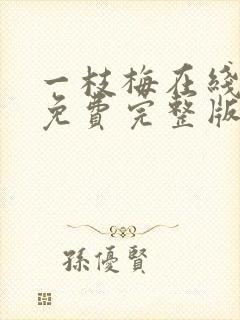 一枝梅在綫
免費完整版
孫優賢